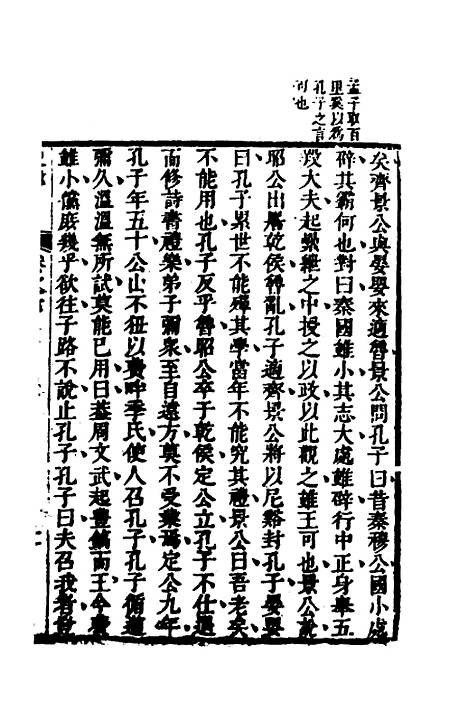 孟子取百
里奚以爲
孔子之言
何也
矣齊景公與晏嬰來適魯景公問孔子曰昔秦穆公國小處
辟其霸何也對曰秦國雖小其志大處雖辟行中正身舉五
羖大夫起纍紲之中授之以政以此觀之雖王可也景公說
昭公出居乾侯魯亂孔子適齊景公將以尼谿封孔子晏嬰
曰孔子累世不能殫其學當年不能究其禮景公曰吾老矣
不能用也孔子反乎魯昭公卒于乾侯定公立孔子不仕退
而修詩書禮樂弟子彌衆至自遠方莫不受業焉定公九年
孔子年五十公山不狃以費畔季氏使人召孔子孔子循道
彌久溫溫無所試莫能已用曰蓋周文武起豐鎬而王今費
雖小儻庶幾乎欲往子路不說止孔子孔子曰夫召我者豈